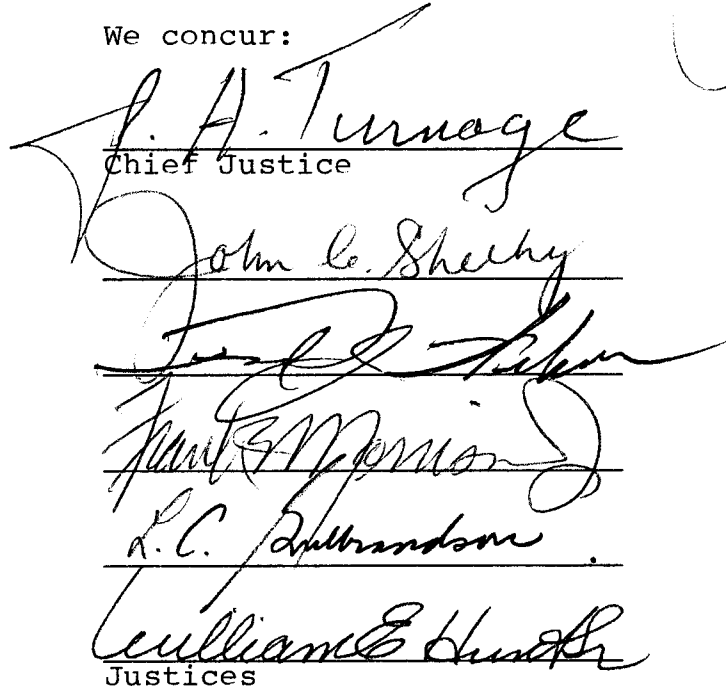 We concur:
J. A. Turnage
Chief Justice
John C. Sheehy
Frank B. Morrison Jr
L. C. Gulbrandson
William E Hunt Sr
Justices